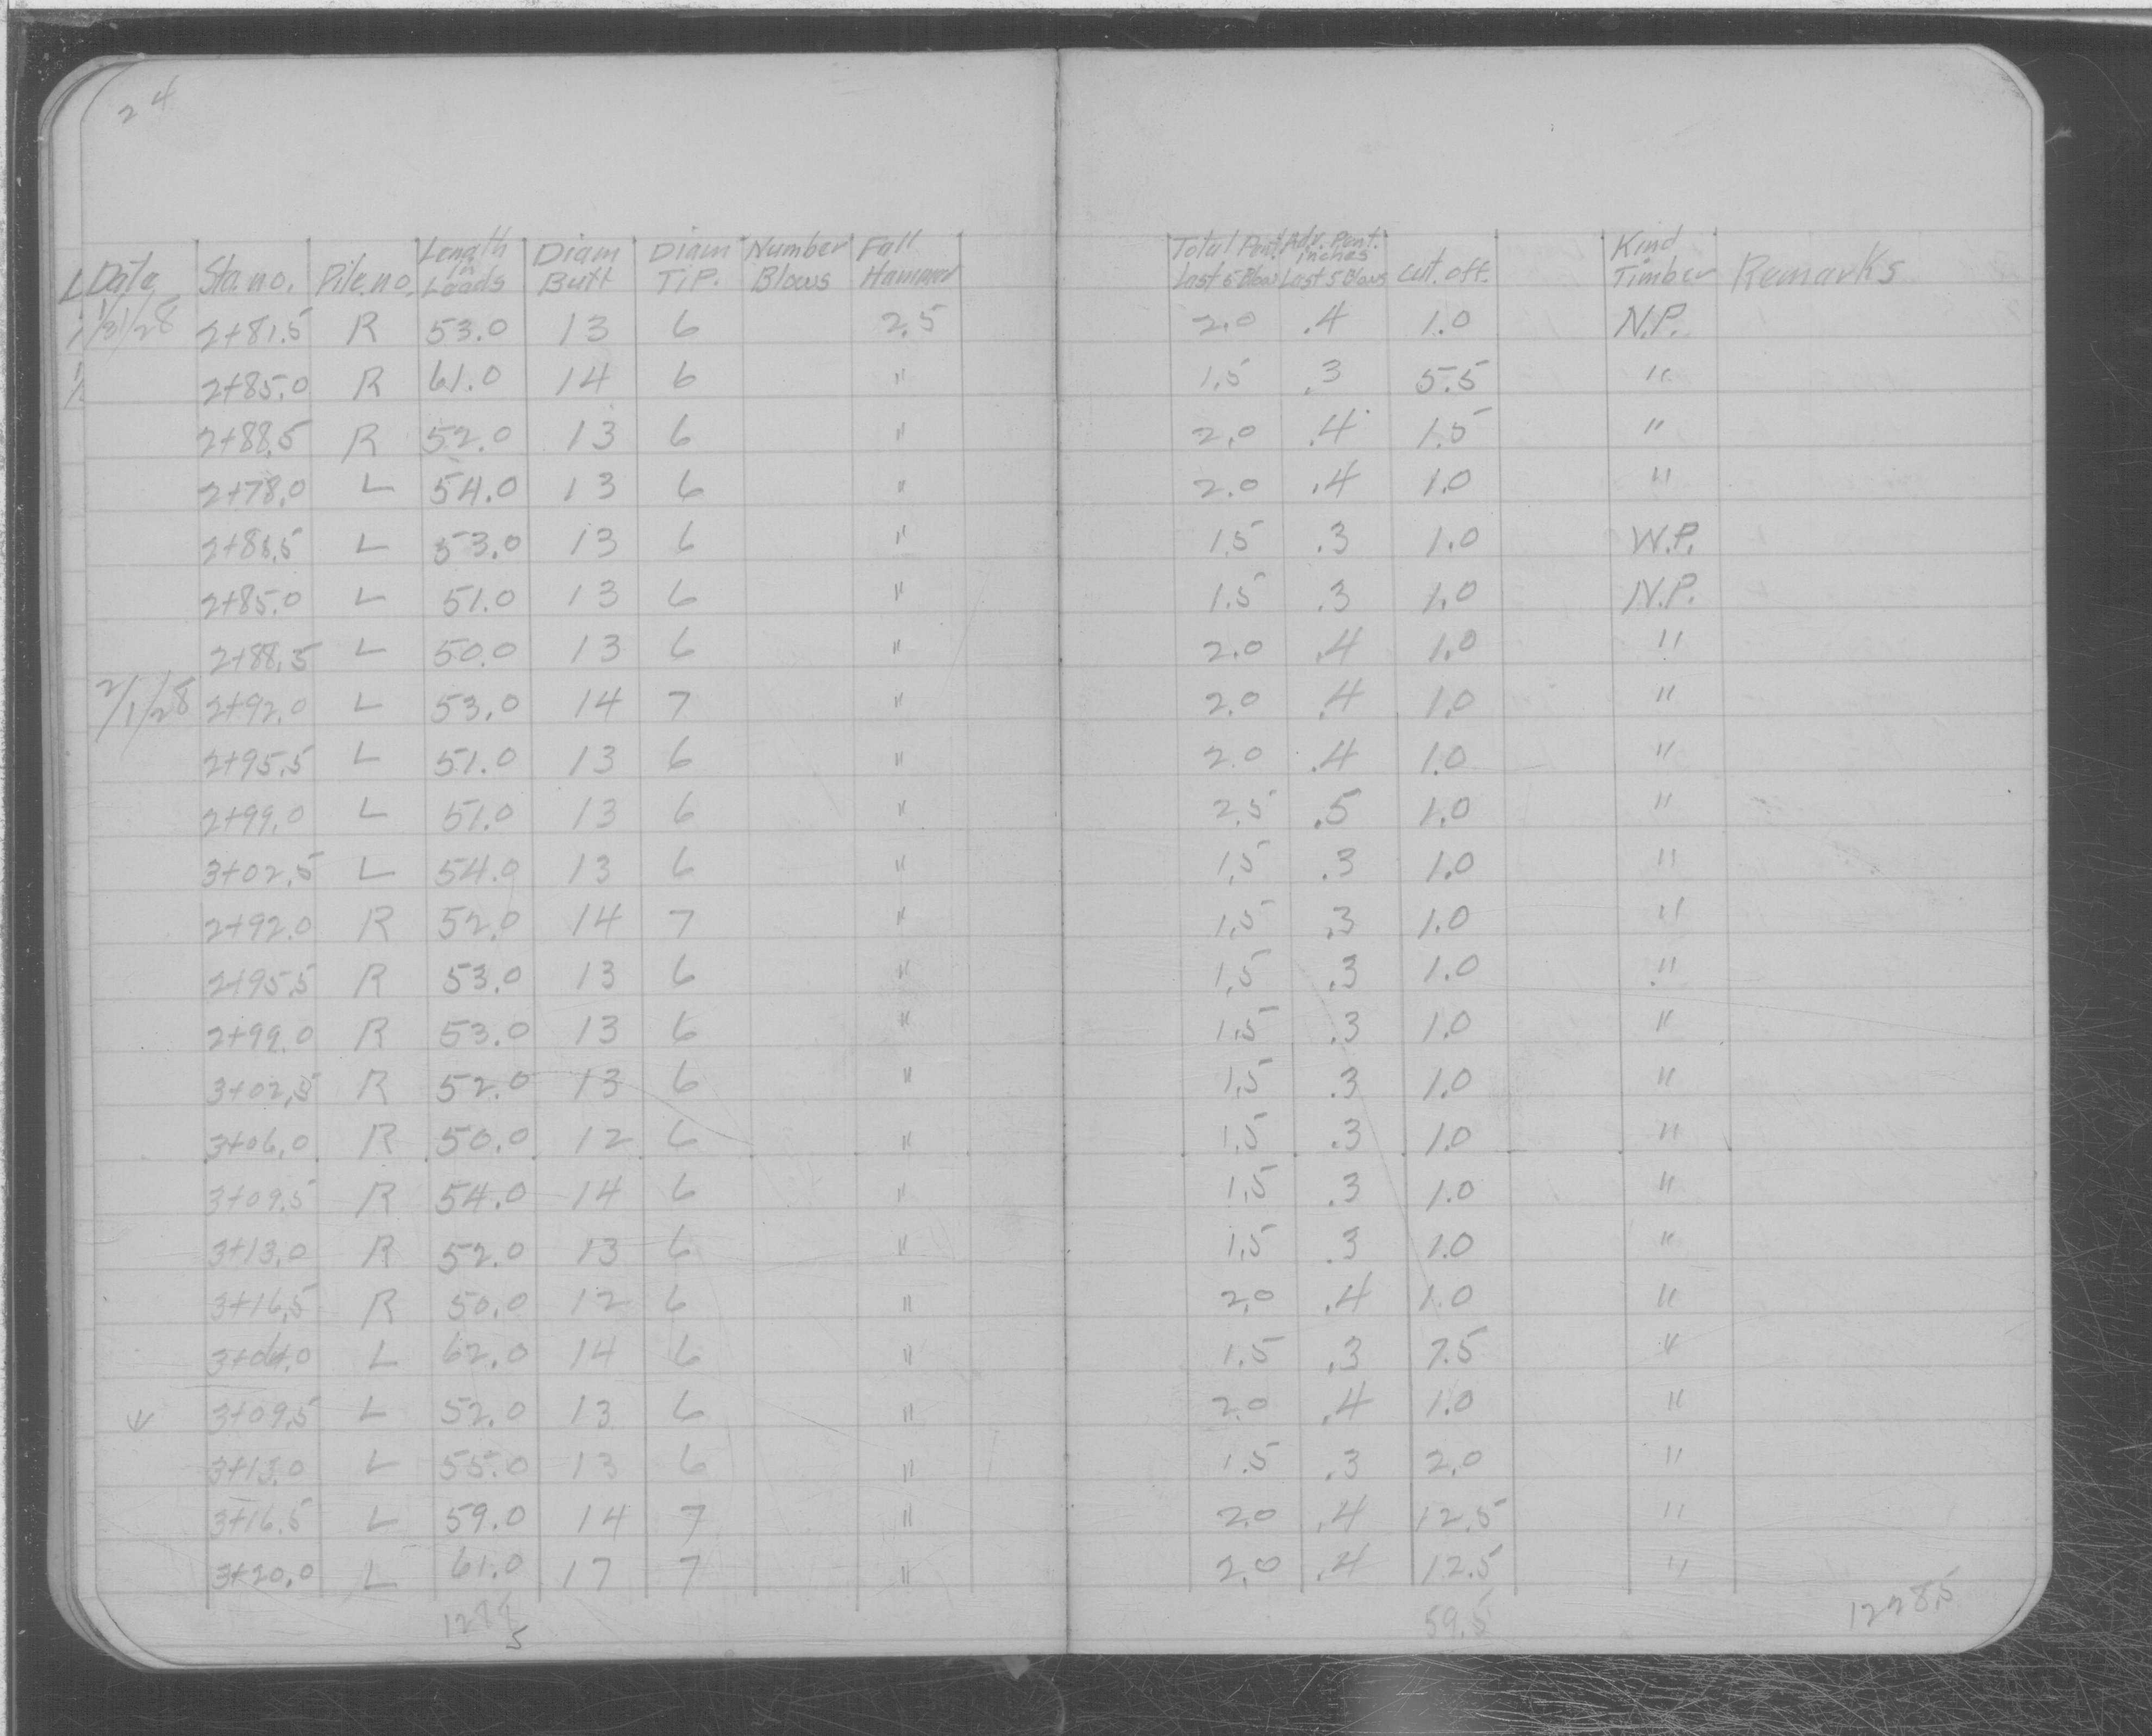 24
Date Sta.no. Pile.no. Length in Leads Diam Butt Diam Tip. Number Blows Fall Hammer Total Pent. Last 5 Blows Adv. Pent. inches Last 5 Blows Cut. off. Kind Timber Remarks
1/31/28 2+81.5 R 53.0 13 6 2.5 2.0 .4 1.0 N.P.
2+85.0 R 61.0 14 6 " 1.5 .3 5.5 "
2+88.5 R 52.0 13 6 " 2.0 .4 1.5 "
2+78.0 L 54.0 13 6 " 2.0 .4 1.0 "
2+81.5 L 53.0 13 6 " 1.5 .3 1.0 W.P.
2+85.0 L 51.0 13 6 " 1.5 .3 1.0 N.P.
2+88.5 L 50.0 13 6 " 2.0 .4 1.0 "
2/1/28 2+92.0 L 53.0 14 7 " 2.0 .4 1.0 "
2+95.5 L 51.0 13 6 " 2.0 .4 1.0 "
2+99.0 L 51.0 13 6 " 2.5 .5 1.0 "
3+02.5 L 54.0 13 6 " 1.5 .3 1.0 "
2+92.0 R 52.0 14 7 " 1.5 .3 1.0 "
2+95.5 R 53.0 13 6 " 1.5 .3 1.0 "
2+99.0 R 53.0 13 6 " 1.5 .3 1.0 "
3+02.5 R 52.0 13 6 " 1.5 .3 1.0 "
3+06.0 R 50.0 12 6 " 1.5 .3 1.0 "
3+09.5 R 54.0 14 6 " 1.5 .3 1.0 "
3+13.0 R 52.0 13 6 " 1.5 .3 1.0 "
3+16.5 R 50.0 12 6 " 2.0 .4 1.0 "
3+06.0 L 62.0 14 6 " 1.5 .3 7.5 "
3+09.5 L 52.0 13 6 " 2.0 .4 1.0 "
3+13.0 L 55.0 13 6 " 1.5 .3 2.0 "
3+16.5 L 59.0 14 7 " 2.0 .4 12.5 "
3+20.0 L 61.0 17 7 " 2.0 .4 12.5 "
1288 59.5 1228.5